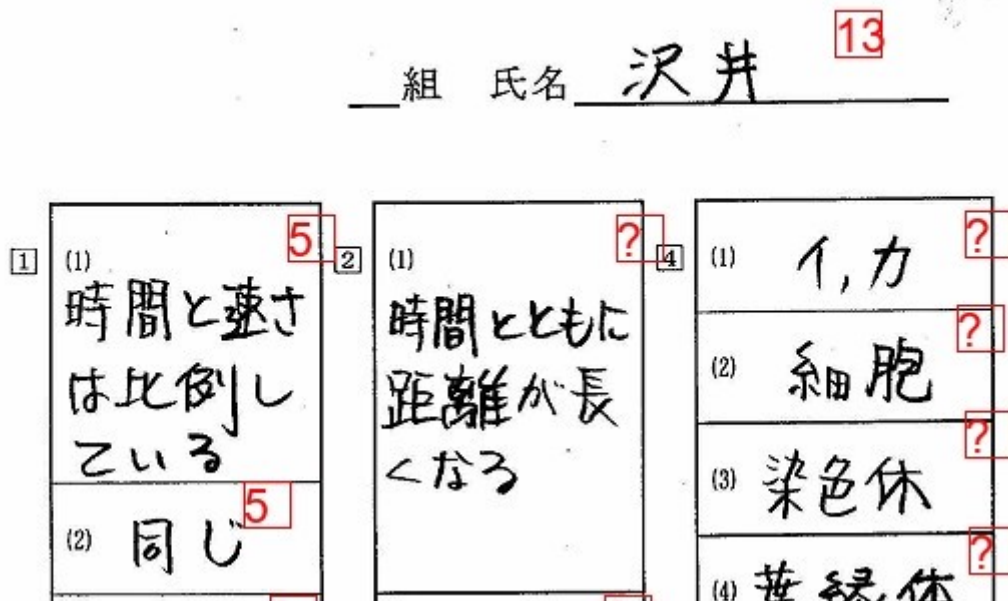 13
組 氏名 沢井
1
(1) 5
時間と速さ
は比例し
ている
(2) 同じ 5
2
(1) ?
時間とともに
距離が長
くなる
4
(1) イ,カ ?
(2) 細胞 ?
(3) 染色休 ?
(4) 葉緑休 ?